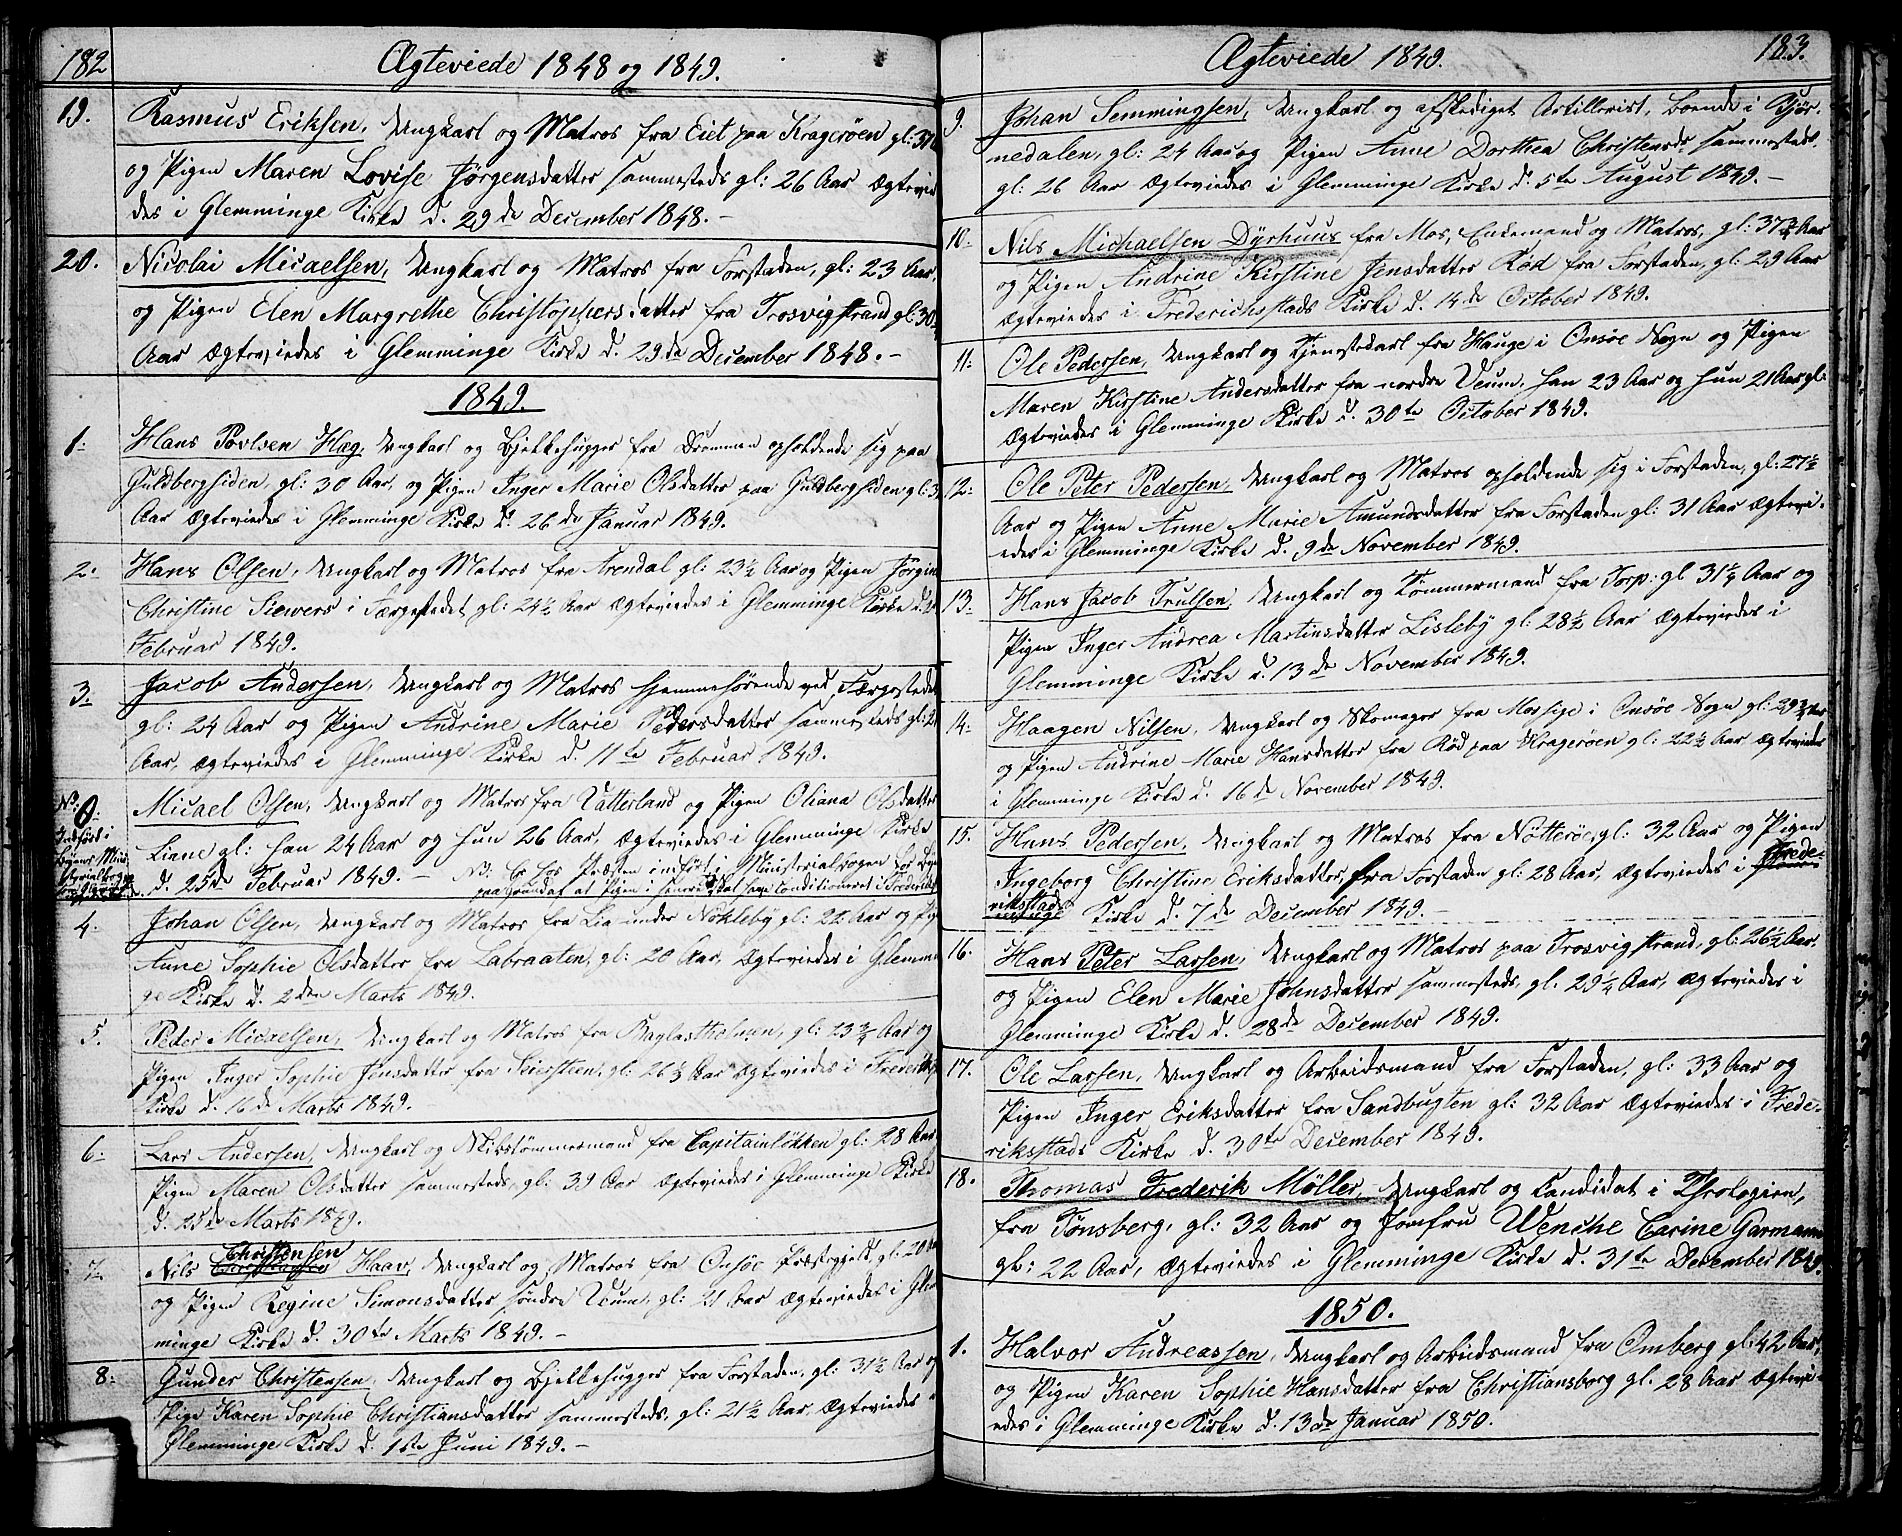 182
Ægteviede 1848 og 1849.
19. Rasmus Eriksen, Ungkarl og Matros fra Eiet paa Kragerøen gl: 37
og Pigen Maren Lovise Jørgensdatter sammesteds gl: 26 Aar Ægtevie
des i Glemminge Kirke d. 29de December 1848.-
20. Nicolai Micaelsen, Ungkarl og Matros fra Forstaden, gl: 23 Aar,
og Pigen Elen Margrethe Christophersdatter fra Trosvigstrand gl: 30
Aar Ægteviedes i Glemminge Kirke d. 29de December 1848.-
1849.
1: Hans Povlsen Hæg, Ungkarl og Bjelkehugger fra Drammen opholdende sig paa
Guldbergsiden, gl: 30 Aar, og Pigen Inger Marie Olsdatter paa Guldbergsiden gl: 3
Aar Ægteviedes i Glemminge Kirke d. 26de Januar 1849.
2: Hans Olsen, Ungkarl og Matros fra Arendal gl: 23½ Aar og Pigen Jørgin
Christine Siewers i Færgestedet gl: 24½ Aar Ægteviedes i Glemminge Kirke d.
Februar 1849.
3: Jacob Andersen, Ungkarl og Matros hjemmehørende ved Færgestedet
gl: 24 Aar og Pigen Andrine Marie Pedersdatter sammesteds gl: 2
Aar, Ægteviedes i Glemminge Kirke d. 11te Februar 1849.
No. 0: Micael Olsen, Ungkarl og Matros fra Vatterland og Pigen Oliana Olsdatter
Indført i
Byens Min
isterialbog
Liane gl: han 24 Aar og hun 26 Aar, Ægteviedes i Glemminge Kirke
d. 25de Februar 1849.- NB: Er hos Præsten indført i Ministerialbogen for Byen
paa Grund af at Pigen i
conditioneret i Frederiks
4. Johan Olsen, Ungkarl og Matros fra Lia under Nøkleby gl: 22 Aar og Pig
Anne Sophie Olsdatter fra Labraaten, gl: 20 Aar, Ægteviedes i Glemmin
ge Kirke d. 2den Marts 1849.
5. Peder Micaelsen, Ungkarl og Matros fra gl: 23¾ Aar og
Pigen Inger Sophie Jensdatter fra Seiersteen, gl: 26½ Aar Ægteviedes i Frederiks
Kirke d. 16de Marts 1849.
6: Lars Andersen, Ungkarl og Skibstømmermand fra Capitainløkken gl: 28 Aar
Pigen Maren Olsdatter sammesteds, gl: 39 Aar Ægteviedes i Glemminge Kirke
d. 25de Marts 1849.
7. Nils Christensen Haav, Ungkarl og Matros fra Onsøe Præstegjeld, gl: 20 Aar
og Pigen Regine Simonsdatter søndre Veum, gl: 21 Aar Ægteviedes i Glem
minge Kirke d. 30te Marts 1849.-
8: Gunder Christensen, Ungkarl og Bjelkehugger fra Forstaden, gl: 31½ Aar og
Pige Karen Sophie Christiansdatter sammesteds, gl: 21½ Aar, Ægteviedes i
Glemminge Kirke d. 1ste Juni 1849.-
Ægteviede 1849.
183.
9. Johan Semmingsen, Ungkarl og afskediget Artillerist, boende i Bjør-
nedalen, gl: 24 Aar og Pigen Anne Dorthea Christensdr. sammesteds.
gl: 26 Aar Ægteviedes i Glemminge Kirke d. 5te August 1849.-
10: Nils Michaelsen Dyrhuus fra Mos, Enkemand og Matros, gl: 37¾ Aar
og Pigen Andrine Kirstine Jensdatter Rød fra Forstaden, gl: 29 Aar
Ægteviedes i Frederichsstads Kirke d. 14de October 1849.
11: Ole Pedersen, Ungkarl og Tjenestekarl fra Hauge i Onsøe Sogn og Pigen
Maren Kirstine Andersdatter fra nordre Veum, han 23 Aar og hun 21 Aar gl:
Ægteviedes i Glemminge Kirke d. 30te October 1849.
12: Ole Peter Pedersen, Ungkarl og Matros opholdende sig i Forstaden, gl: 27½
Aar og Pigen Anne Marie Amundsdatter fra Forstaden gl: 31 Aar Ægtevi-
edes i Glemminge Kirke d. 9de November 1849.
13: Hans Jacob Trulsen, Ungkarl og Tømmermand fra Torp: gl 31½ Aar og
Pigen Inger Andrea Martinsdatter Lisleby gl: 28½ Aar Ægteviedes i
Glemminge Kirke d. 13de November 1849.
14: Haagen Nilsen, Ungkarl og Skomager fra Mossige i Onsøe Sogn gl: 29¾ Aar
og Pigen Andrine Marie Hansdatter fra Rød paa Kragerøen gl: 22½ Aar Ægteviedes
i Glemminge Kirke d. 16de November 1849.
15. Hans Pedersen, Ungkarl og Matros fra Nøtterøe, gl: 32 Aar og Pigen
Ingeborg Christine Eriksdatter, fra Forstaden gl: 28 Aar, Ægteviedes i Frede-
riksstads Kirke d. 7de December 1849.-
16. Hans Peter Larsen, Ungkarl og Matros paa Trosvigstrand, gl: 26½ Aar.
og Pigen Elen Marie Johnsdatter sammesteds, gl. 29¼ Aar, Ægteviedes i
Glemminge Kirke d. 28de December 1849.
17. Ole Larsen, Ungkarl og Arbeidsmand fra Forstaden, gl: 33 Aar og
Pigen Inger Eriksdatter fra Sandbugten gl: 32 Aar Ægteviedes i Frede-
riksstads Kirke d. 30te December 1849.
18. Thomas Frederik Møller, Ungkarl og Candidat i Theologien,
fra Tønsberg, gl: 32 Aar og Jomfru Wenche Carine Garmann
gl: 22 Aar, Ægteviedes i Glemminge Kirke d. 31te December 1849.
1850.
1. Halvor Andreassen, Ungkarl og Arbeidsmand fra Omberg gl: 42 Aar,
og Pigen Karen Sophie Hansdatter fra Christiansborg gl. 28 Aar Ægtevi-
edes i Glemminge Kirke d. 13de Januar 1850.